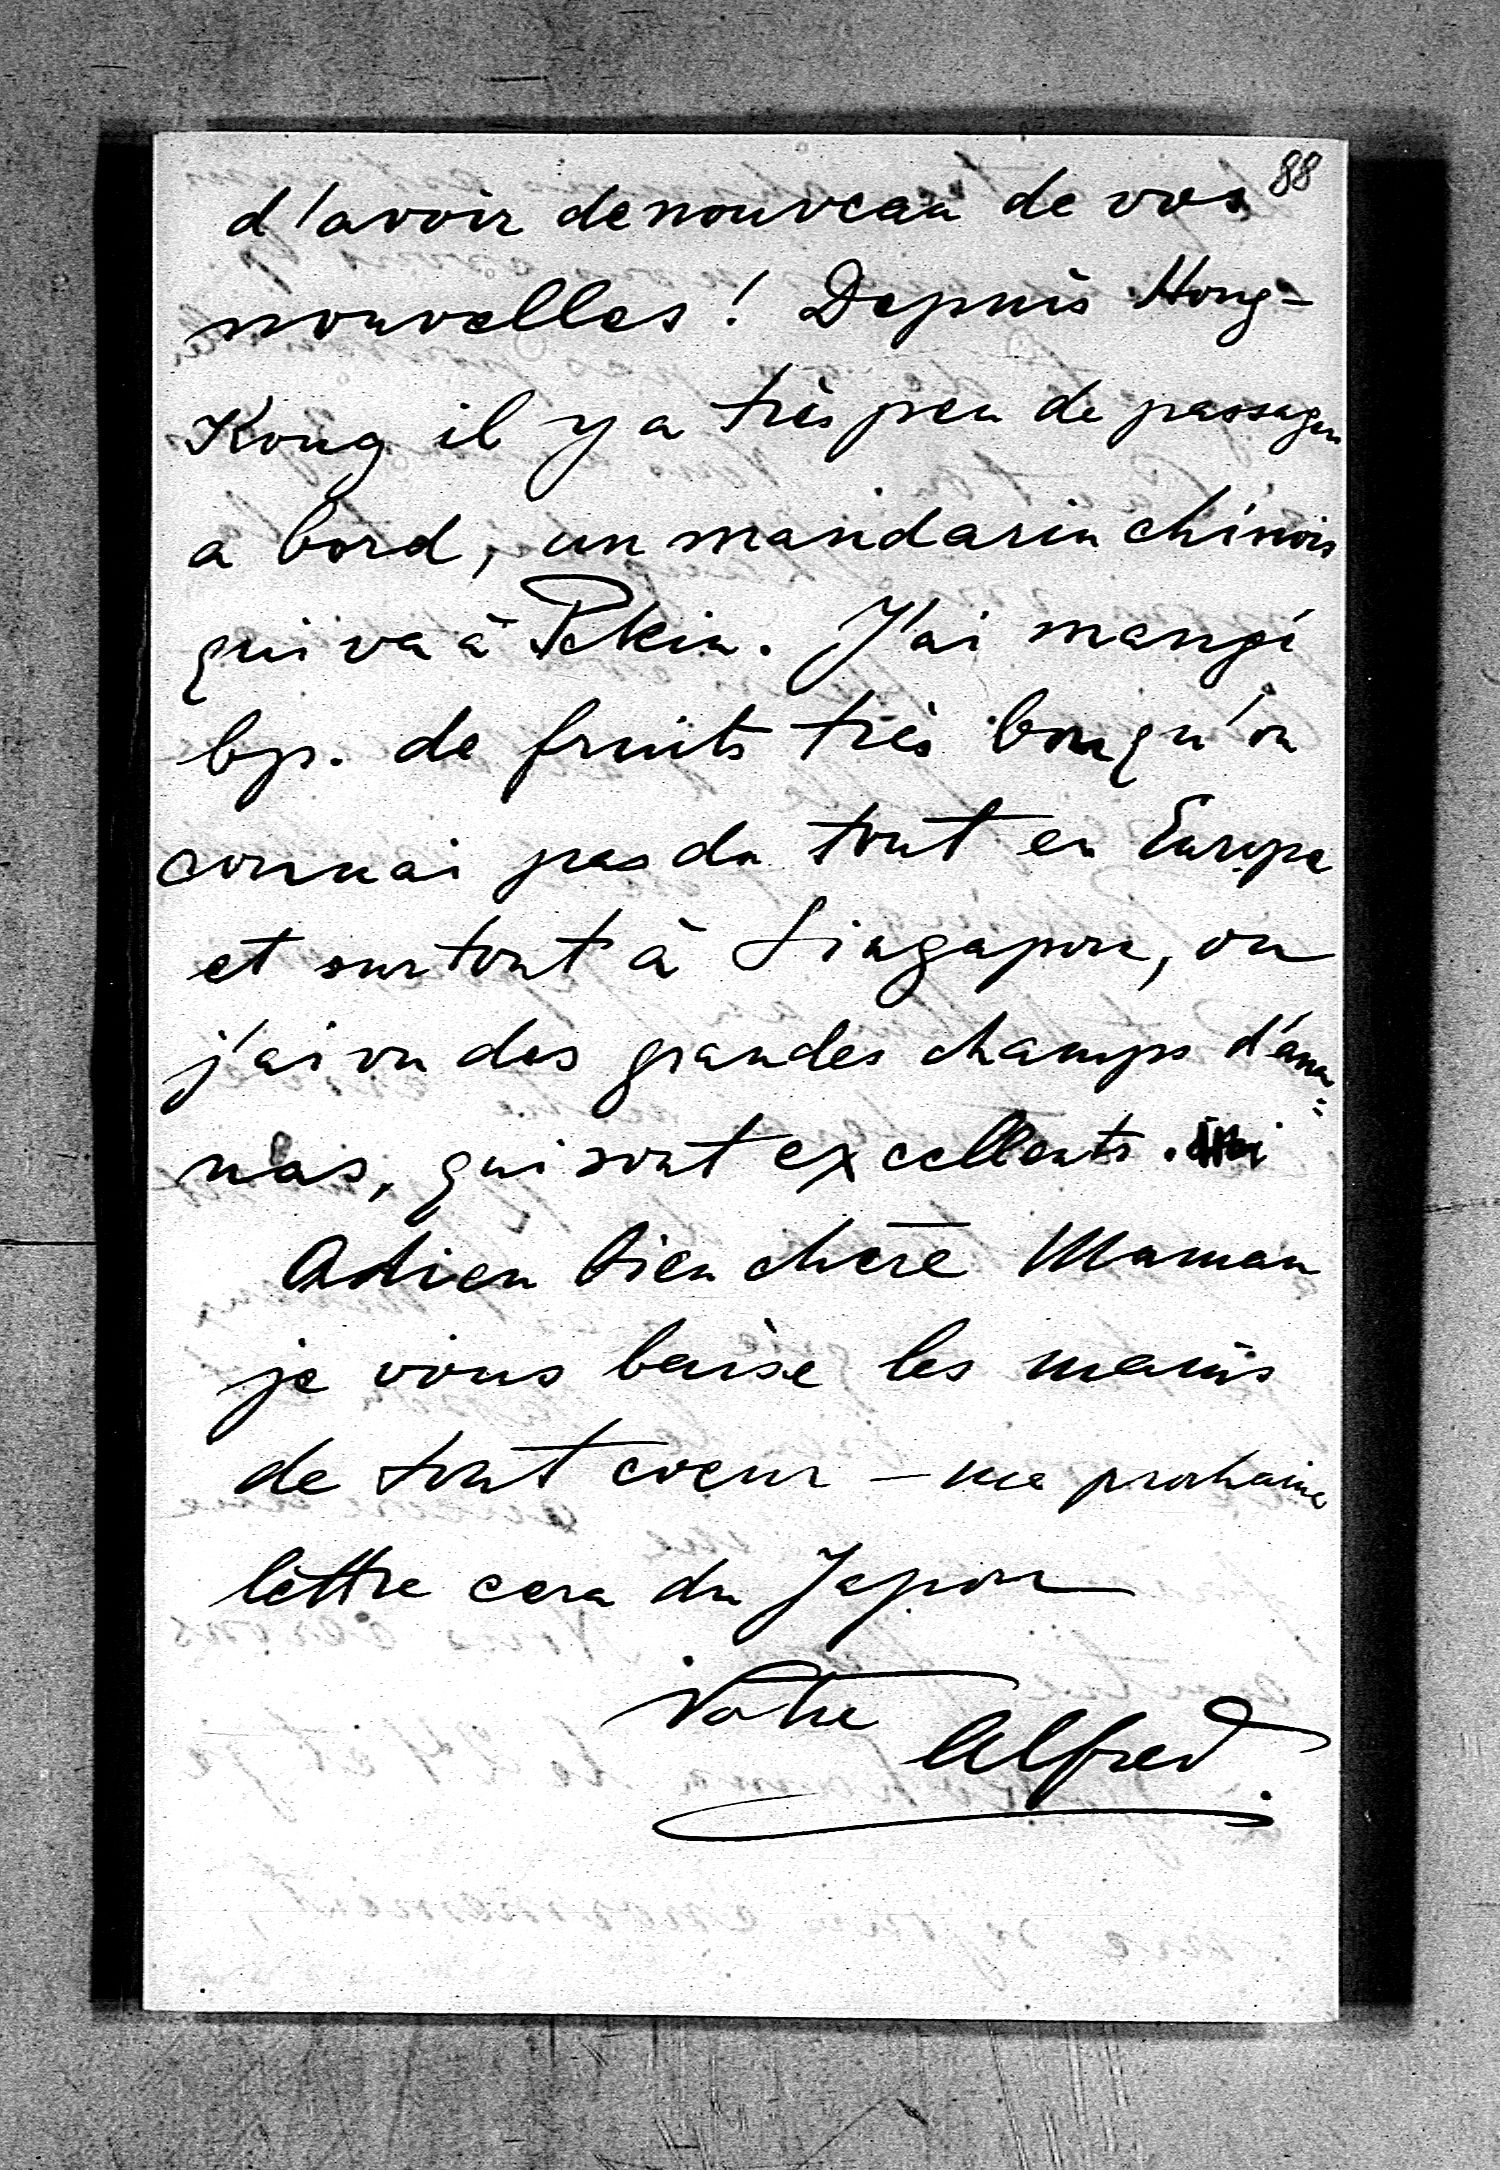 88
d'avoir de nouveau de vos
nouvelles! Depuis Hong-
Kong il y a très peu de passagers
a bord, un mandarin chinois
qui va à Pekin. J'ai mangé
bp. de fruits très bon qu'on
connai pas du tout en Europe
et surtout à Singapour, ou
j'ai vu des grandes champs d'ana=
nas, qui sont excellents.
Adieu bien chère Maman
je vous baise les mains
de tout coeur – ma prochaine
lettre cera du Japon
Votre
Alfred.